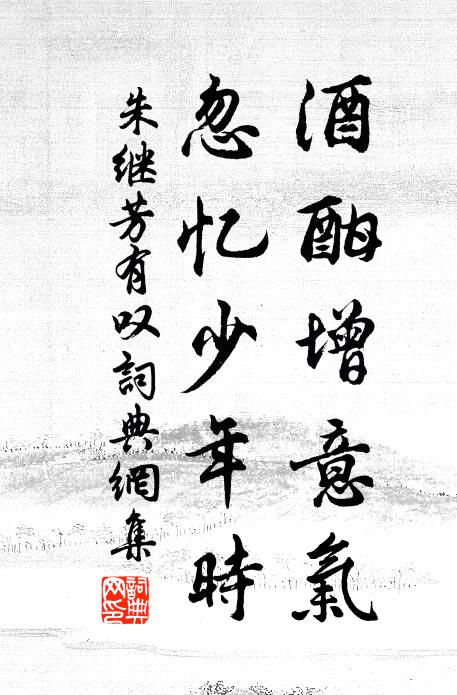 酒酣增意氣
忽忆少年時
朱继芳有叹詞典網集